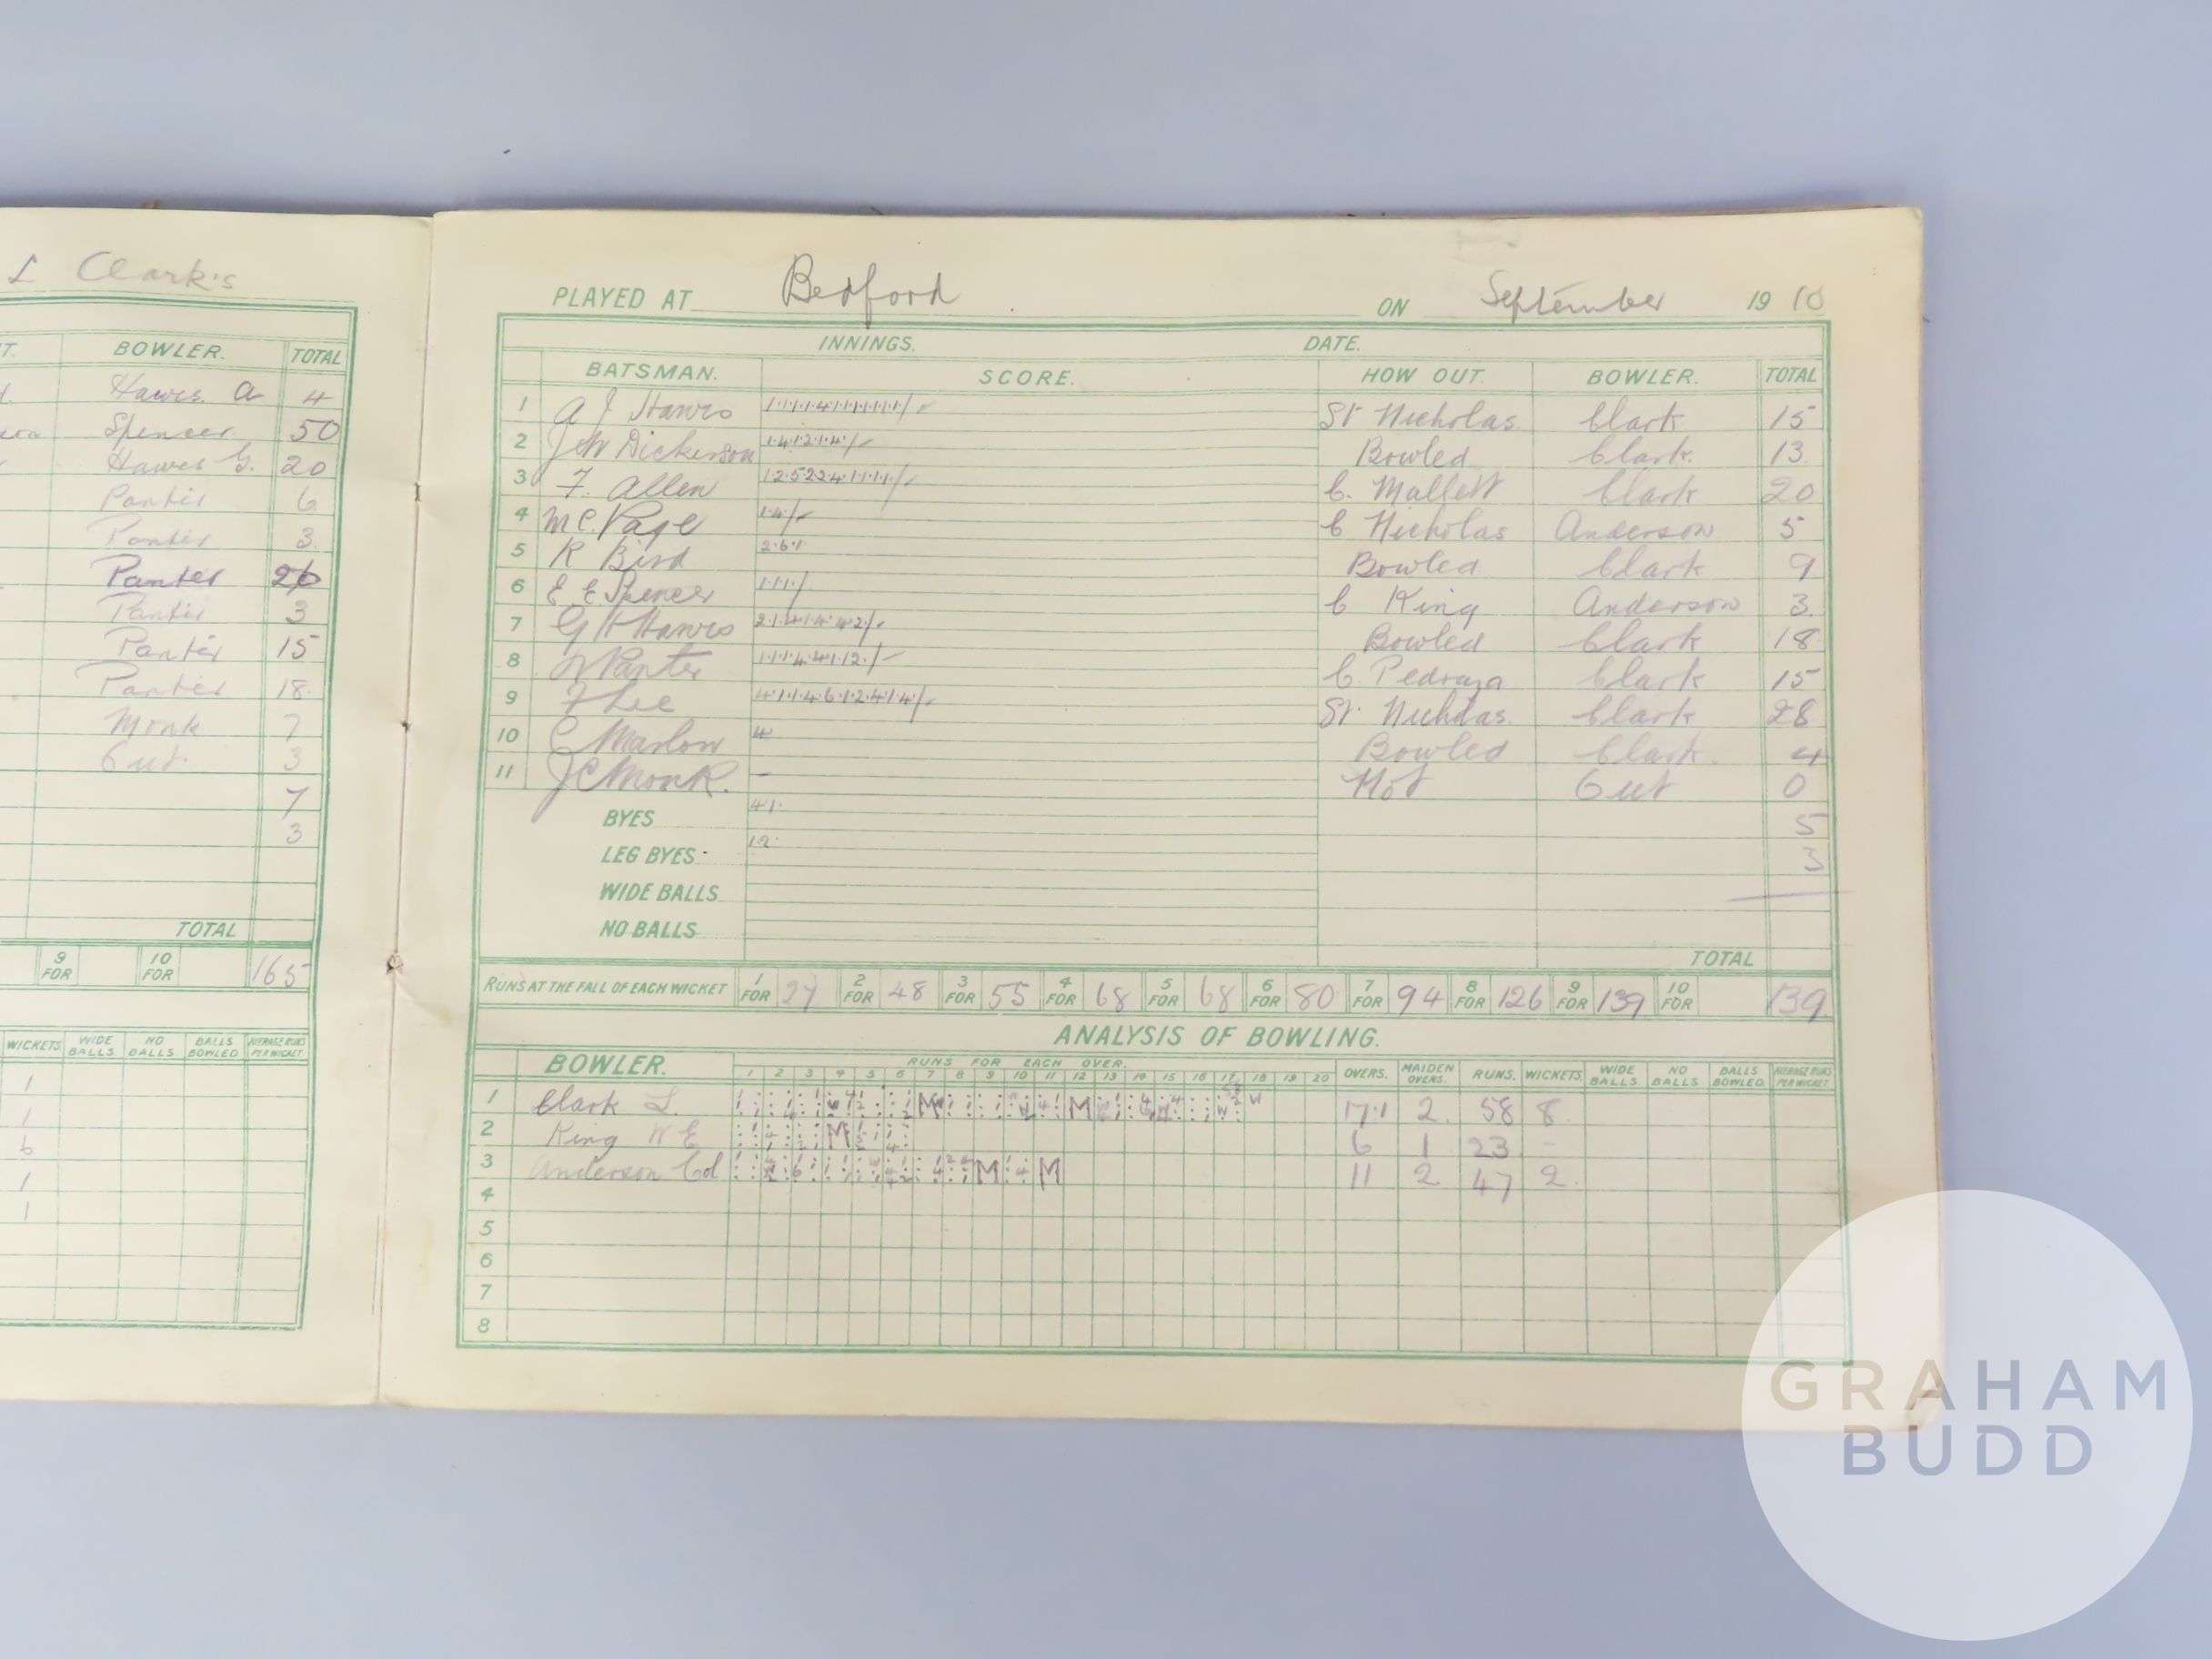 L Clark's
BOWLER. TOTAL
Hawes. A 4
Spencer 50
Hawes G. 20
Panter 6
Panter 3
Panter 26
Panter 3
Panter 15
Panter 18
Monk 7
Out 3
7
3
TOTAL
9 FOR 10 FOR 165
WICKETS WIDE BALLS NO BALLS BALLS BOWLED AVERAGE RUNS PER WICKET
1
1
6
1
1
PLAYED AT Bedford ON September 19 10
INNINGS. DATE.
BATSMAN. SCORE. HOW OUT. BOWLER. TOTAL
1 A J Hawes St Nicholas Clark 15
2 J W Dickerson 1·4·1·2·1·4 Bowled Clark. 13
3 F. Allen C. Mallett Clark 20
4 M C. Page 1·4 C Nicholas Anderson 5
5 R Bird 2·6·1 Bowled Clark 9
6 E E Spencer 1·1·1 C King Anderson 3
7 G H Hawes Bowled Clark 18
8 W Panter C. Pedraza Clark 15
9 F Lee St. Nicholas Clark 28
10 C Marlow 4 Bowled Clark. 4
11 J C Monk. – Not Out 0
BYES 4 1 5
LEG BYES 1 2 3
WIDE BALLS
NO BALLS
TOTAL
RUNS AT THE FALL OF EACH WICKET 1 FOR 27 2 FOR 48 3 FOR 55 4 FOR 68 5 FOR 68 6 FOR 80 7 FOR 94 8 FOR 126 9 FOR 139 10 FOR 139
ANALYSIS OF BOWLING.
BOWLER. RUNS FOR EACH OVER. OVERS. MAIDEN OVERS. RUNS. WICKETS. WIDE BALLS NO BALLS BALLS BOWLED AVERAGE RUNS PER WICKET
1 2 3 4 5 6 7 8 9 10 11 12 13 14 15 16 17 18 19 20
1 Clark L. M M 17·1 2 58 8
2 King W E M 6 1 23 –
3 Anderson Col M M 11 2 47 2
4
5
6
7
8
GRAHAM
BUDD